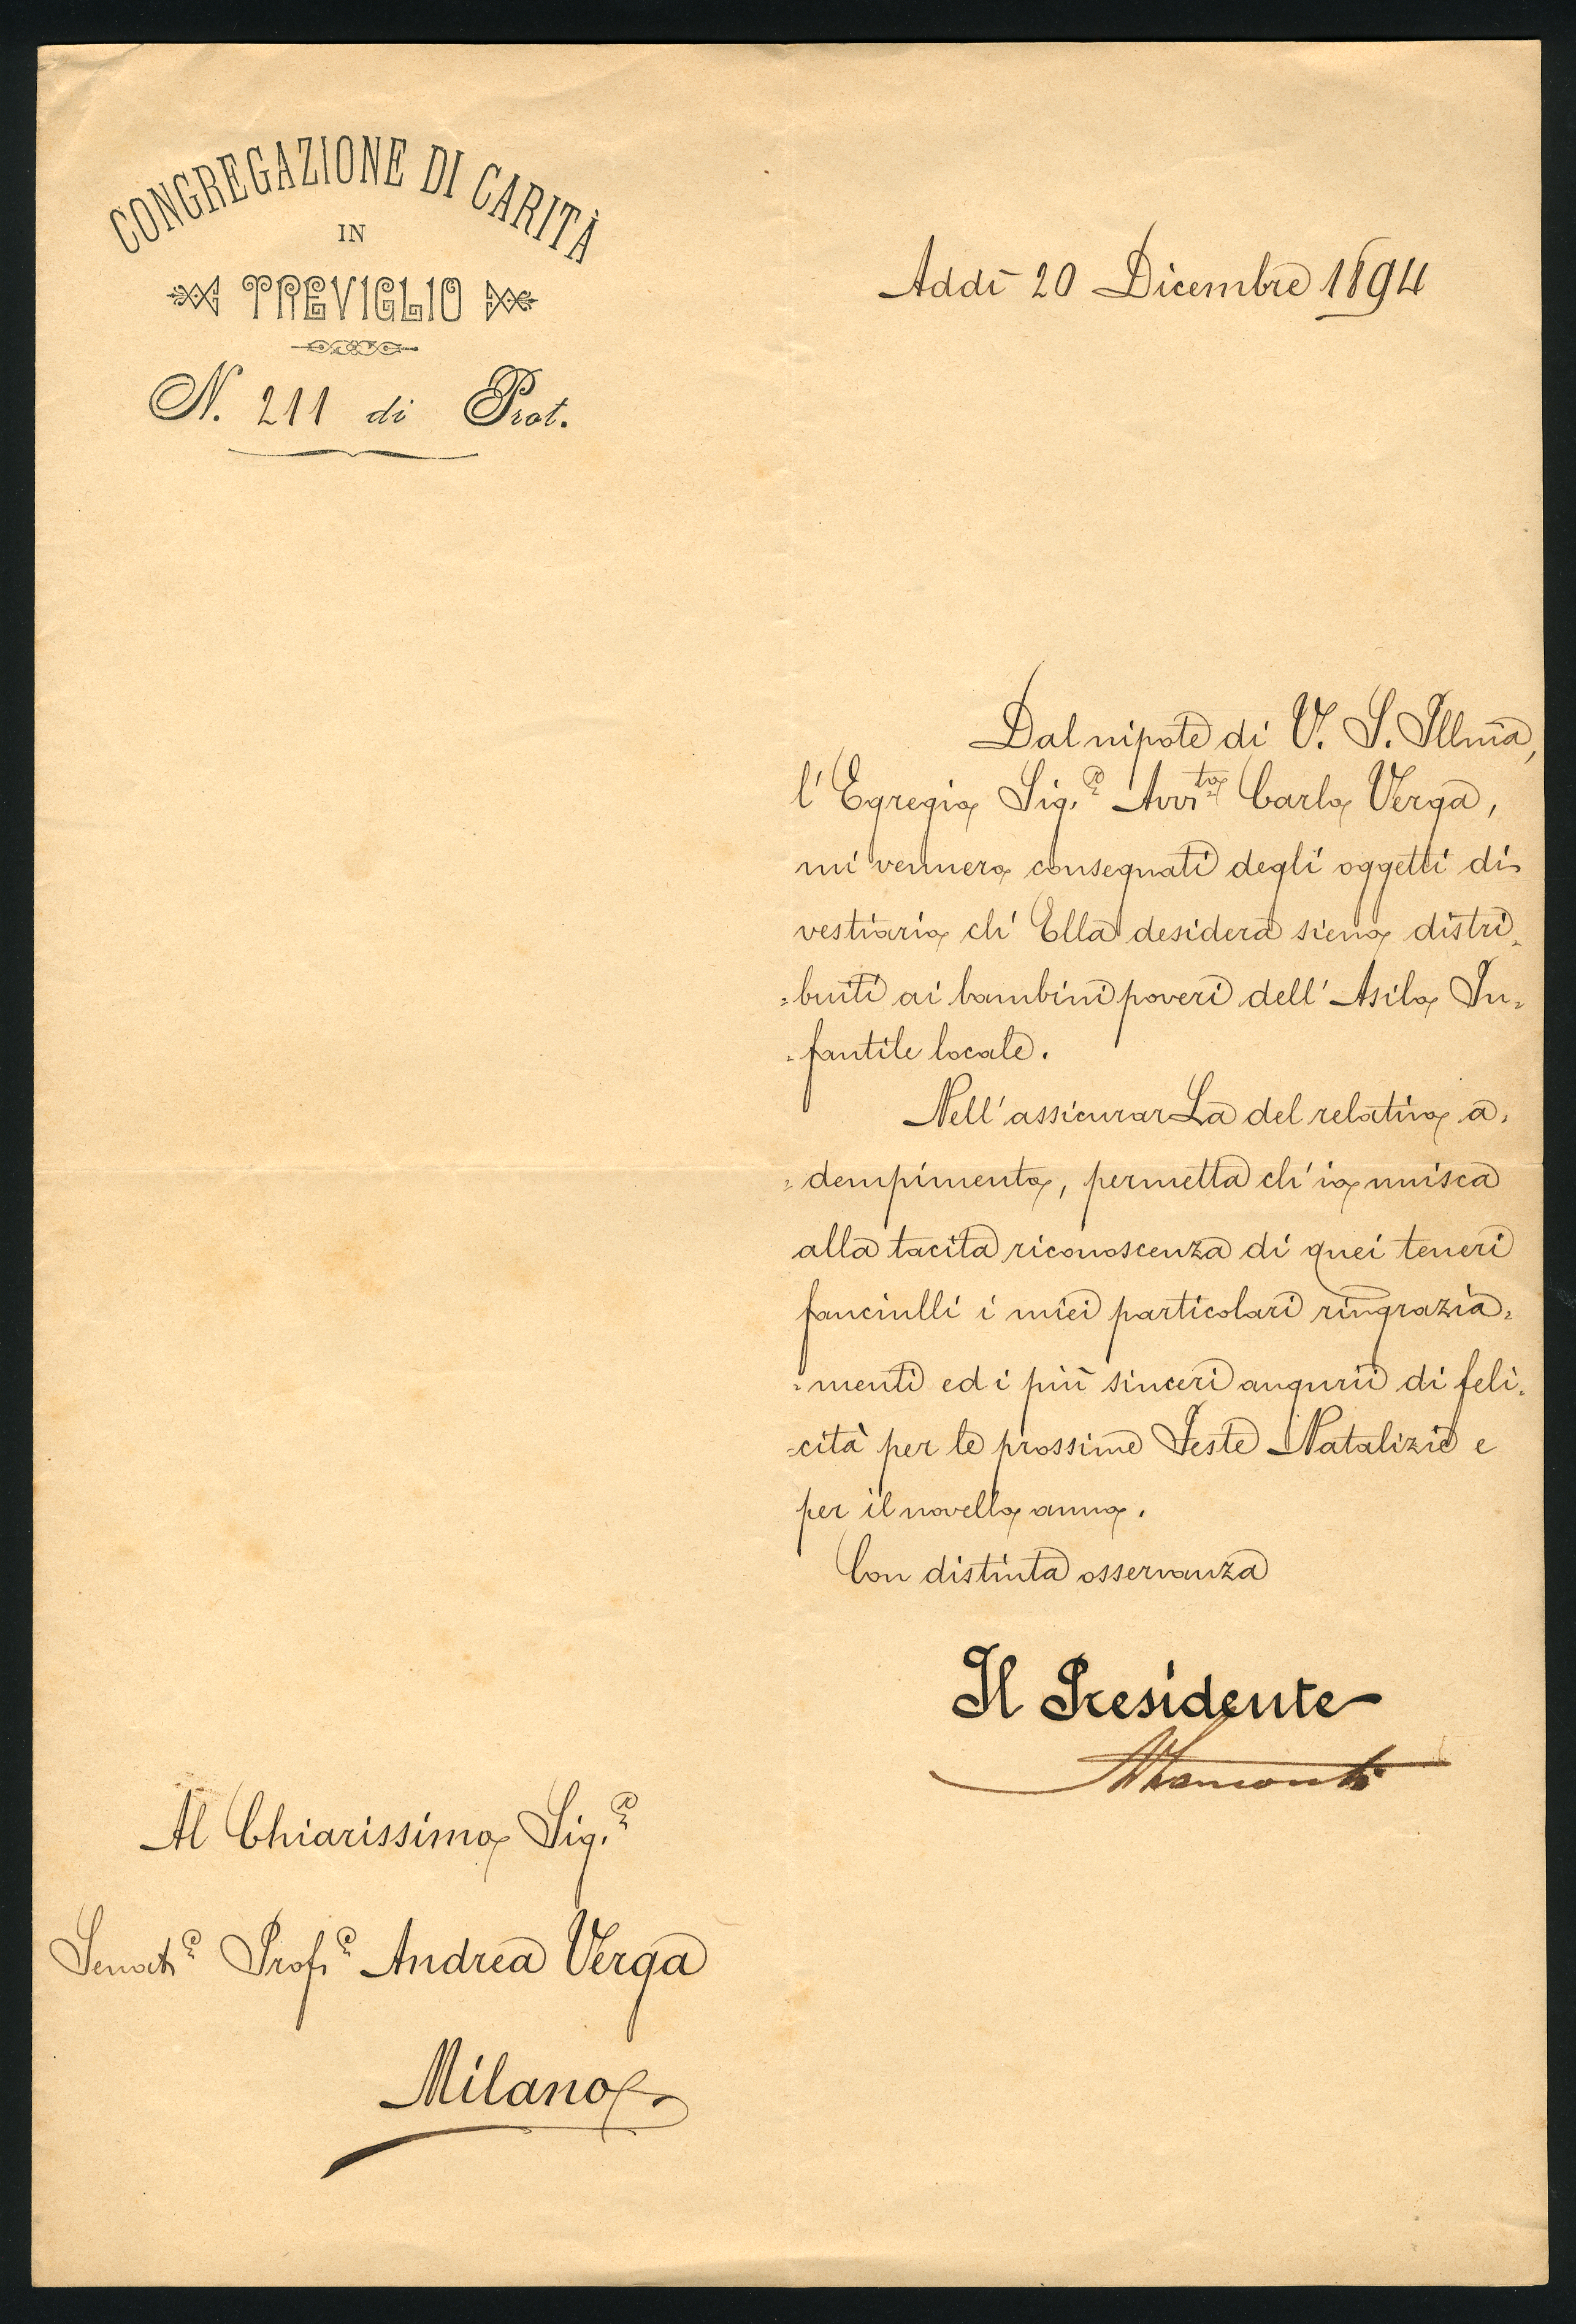 CONGREGAZIONE DI CARITÀ
IN
TREVIGLIO
N. 211 di Prot.
Addì 20 Dicembre 1894
Dal nipote di V. S. Illma,
l'Egregio Sig.r Avv.to Carlo Verga,
mi vennero consegnati degli oggetti di
vestiario ch'Ella desidera sieno distri=
=buiti ai bambini poveri dell'Asilo In=
=fantile locale.
Nell'assicurarLa del relativo a=
=dempimento, permetta ch'io unisca
alla tacita riconoscenza di quei teneri
fanciulli i miei particolari ringrazia=
=menti ed i più sinceri augurii di feli=
=cità per le prossime Feste Natalizie e
per il novello anno.
Con distinta osservanza
Il Presidente
Al Chiarissimo Sig.r
Senat.e Prof.e Andrea Verga
Milano